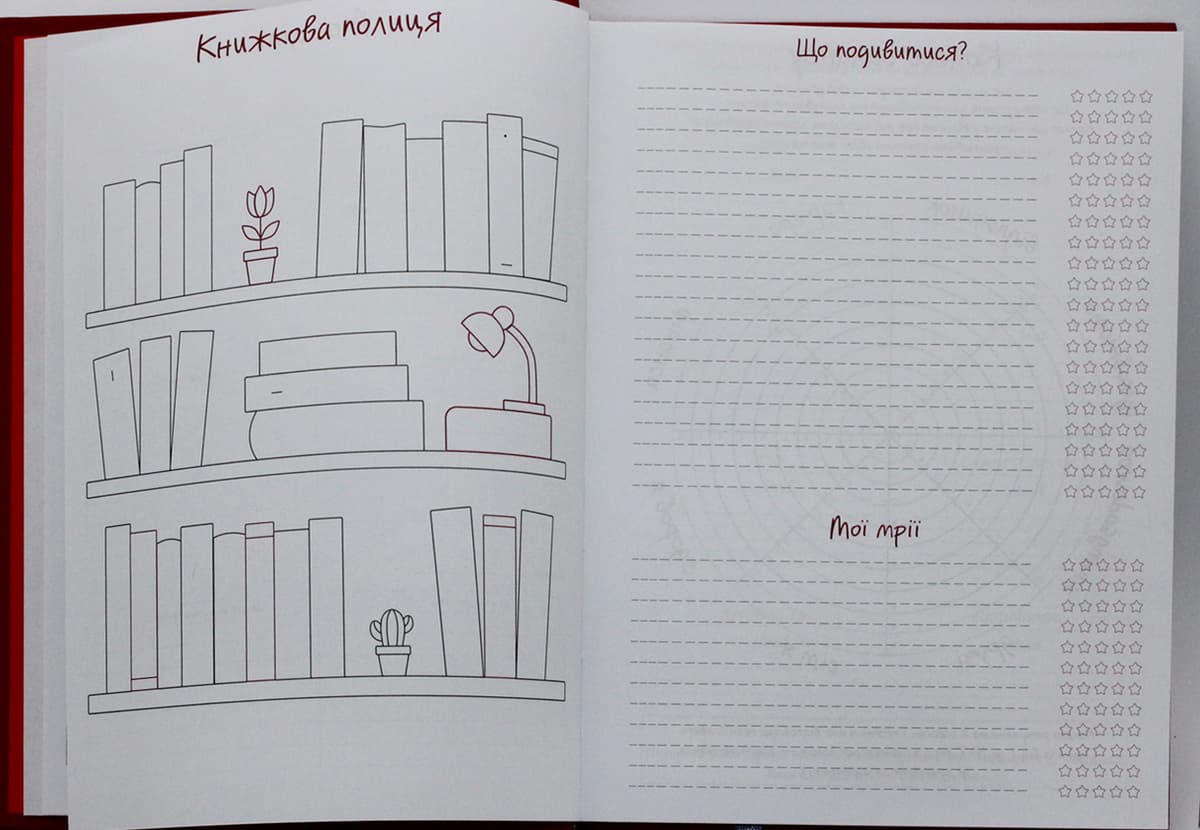 Книжкова полиця
Що подивитися?
Мої мрії